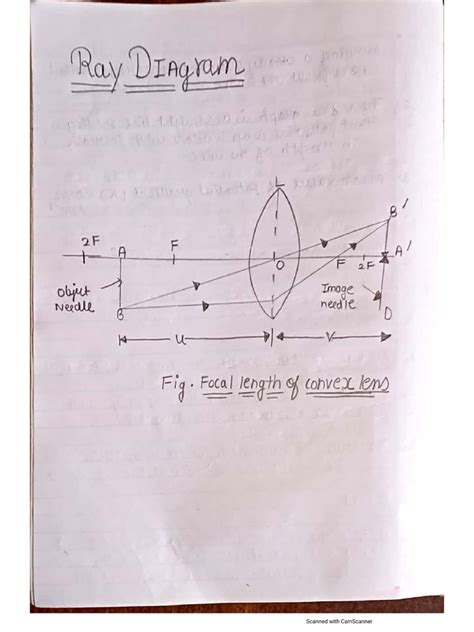 Ray DIAgram
L
B'
2F A F O F 2F A'
Object
Needle
Image
needle
B D
u v
Fig. Focal length of convex lens
Scanned with CamScanner